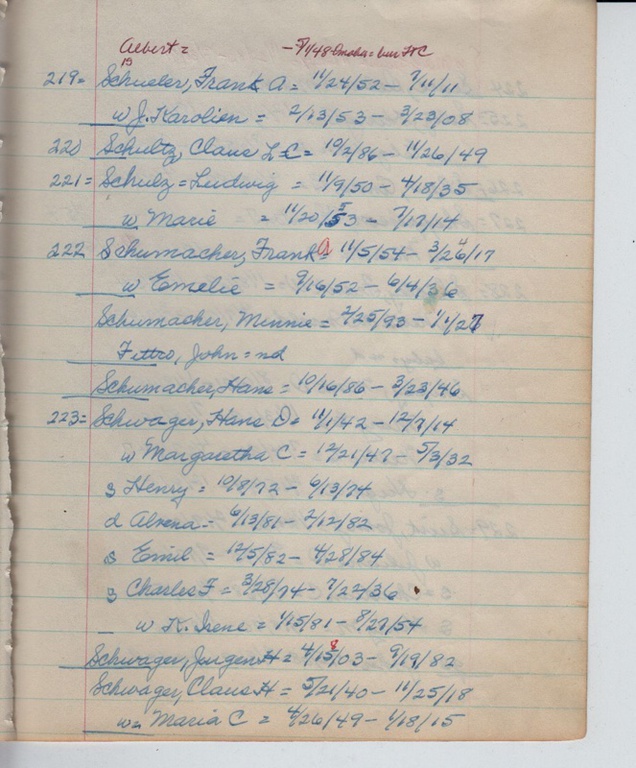 Albert = - 5/1/48 Omaha = bur HC
219 = Schueler, Frank A = 11/24/52 - 7/11/11
w J. Karolien = 2/13/53 - 3/23/08
220 Schultz, Claus L E = 10/2/86 - 11/26/49
221 = Schulz = Ludwig = 11/9/50 - 4/18/35
w Marie = 11/20/53 - 7/17/14
222 Schumacher, Frank A = 11/5/54 - 3/26/17
w Emelie = 9/16/52 - 6/4/36
Schumacher, Minnie = 2/25/93 - 1/1/27
Fettro, John = nd
Schumacher, Hans = 10/16/86 - 3/23/46
223 = Schwager, Hans D = 11/1/42 - 12/7/14
w Margaretha C = 12/21/47 - 5/3/32
s Henry = 10/8/72 - 6/13/74
d Alvena = 6/13/81 - 2/12/82
s Emil = 12/5/82 - 4/28/84
s Charles F = 3/28/74 - 7/22/36
w K. Irene = 1/15/81 - 8/27/54
Schwager, Jurgen H = 4/15/03 - 9/19/82
Schwager, Claus H = 5/21/40 - 11/25/18
w = Maria C = 4/26/49 - 1/18/15